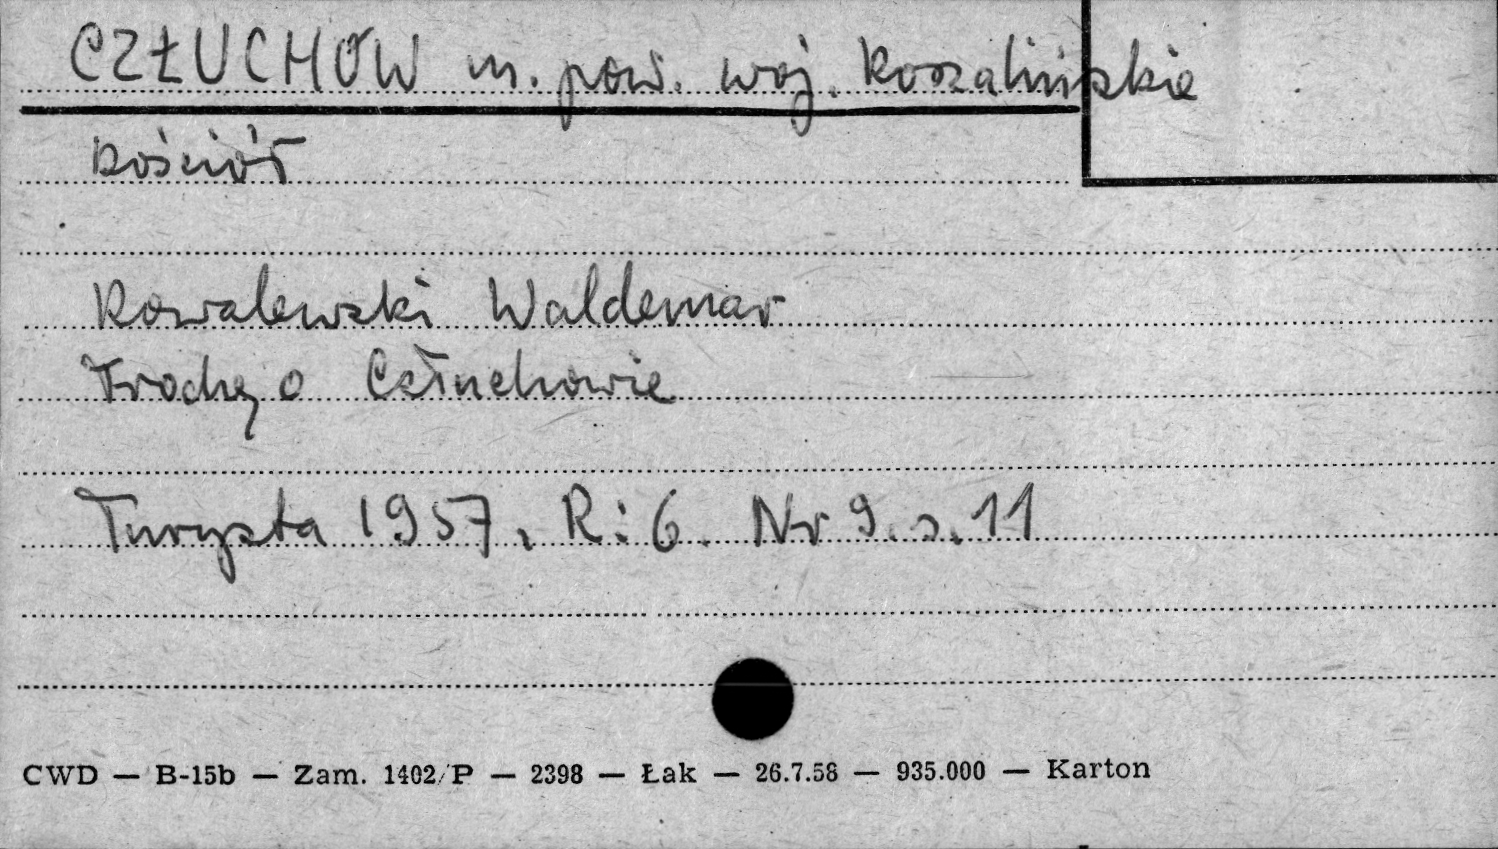 CZŁUCHÓW m. pow. woj. koszalińskie
kościół
Kowalewski Waldemar
Trochę o Człuchowie
Turysta 1957. R: 6. Nr 9. s. 11
CWD — B-15b — Zam. 1402/P — 2398 — Łak — 26.7.58 — 935.000 — Karton